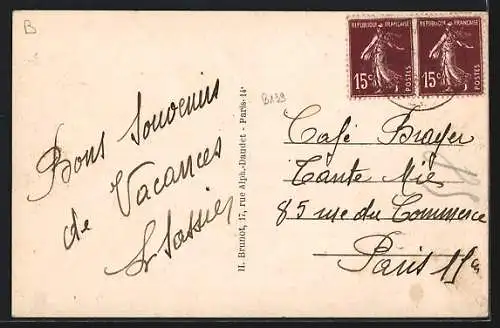 B
REPUBLIQUE FRANÇAISE
15c POSTES
REPUBLIQUE FRANÇAISE
15c POSTES
Bons Souvenirs
de Vacances
H. Brunot, 17, rue Alph.-Daudet - Paris-14e
B139
Café
Tante Mie
85 rue du Commerce
Paris